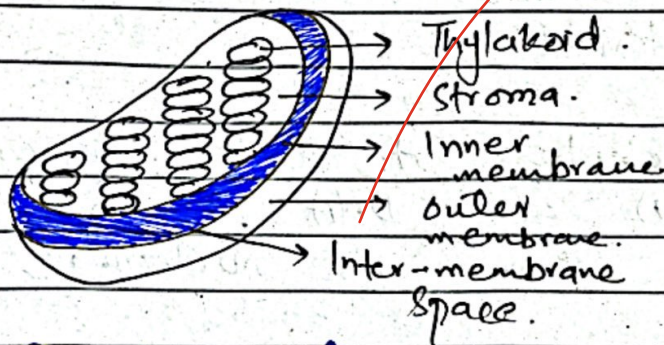 Thylakoid.
Stroma.
Inner
membrane
outer
membrane.
Inter-membrane
Space.